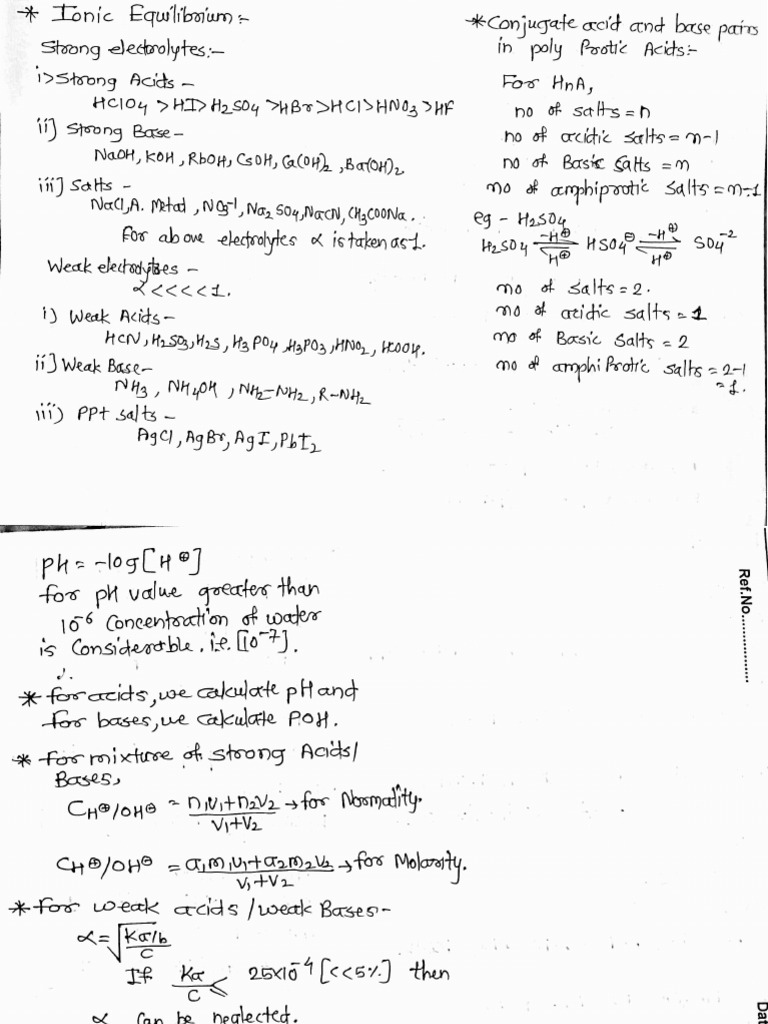 * Ionic Equilibrium:-
Strong electrolytes:-
i> Strong Acids -
HClO4 > HI > H2SO4 > HBr > HCl > HNO3 > HF
ii] Strong Base -
NaOH, KOH, RbOH, CsOH, Ca(OH)2, Ba(OH)2
iii] Salts -
NaCl, A. Metal, NO3-1, Na2SO4, NaCN, CH3COONa.
For above electrolytes α is taken as 1.
Weak electrolytes -
α<<<<1.
i) Weak Acids -
HCN, H2SO3, H2S, H3PO4, H3PO3, HNO2, HCOOH.
ii] Weak Base -
NH3, NH4OH, NH2-NH2, R-NH2
iii) PPt salts -
AgCl, AgBr, AgI, PbI2
* Conjugate acid and base pairs
in poly Protic Acids:-
For HnA,
no of salts = n
no of acidic salts = n-1
no of Basic Salts = n
no of amphiprotic salts = n-1
eg - H2SO4
H2SO4 ⇌ HSO4⊖ ⇌ SO4-2
-H⊕ -H⊕
H⊕ H⊕
no of salts = 2.
no of acidic salts = 1
no of Basic salts = 2
no of amphiProtic salts = 2-1
= 1.
pH = -log[H⊕]
for pH value greater than
10-6 Concentration of water
is Considerable. i.e. [10-7].
* for acids, we calculate pH and
for bases, we calculate POH.
* for mixture of strong Acids/
Bases,
CH⊕/OH⊖ = n1v1+n2v2 / v1+v2 → for Normality.
CH⊕/OH⊖ = a1m1v1+a2m2v2 / v1+v2 → for Molarity.
* for weak acids / weak Bases -
α = √Ka/b / C
If Ka / C < 25x10-4 [<<5%] then
α can be neglected.
Ref.No.
Dat